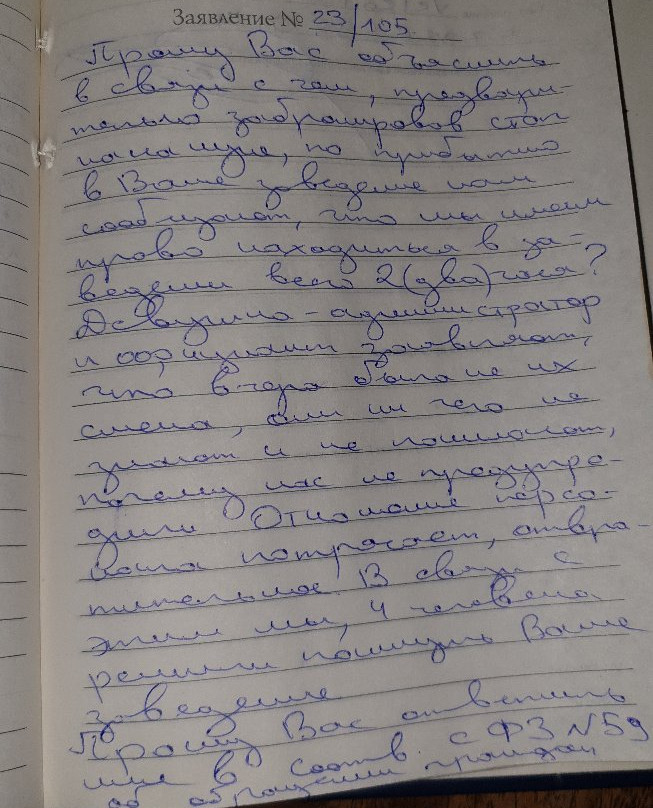 Заявление № 23/105.
Прошу Вас объяснить
в связи с чем, предвари-
тельно забронировав стол
накануне, по прибытию
в Ваше заведение нам
сообщают, что мы имеем
право находиться в за-
ведении всего 2(два)часа?
Девушка-администратор
и официант заявляют,
что вчера была не их
смена, они ни чего не
знают и не понимают,
почему нас не предупре-
дили Отношение персо-
нала потрясает, отвра-
тительное. В связи с
этим мы, 4 человека
решили покинуть Ваше
заведение
Прошу Вас ответить
мне в соотв. с ФЗ N59
об обращении граждан